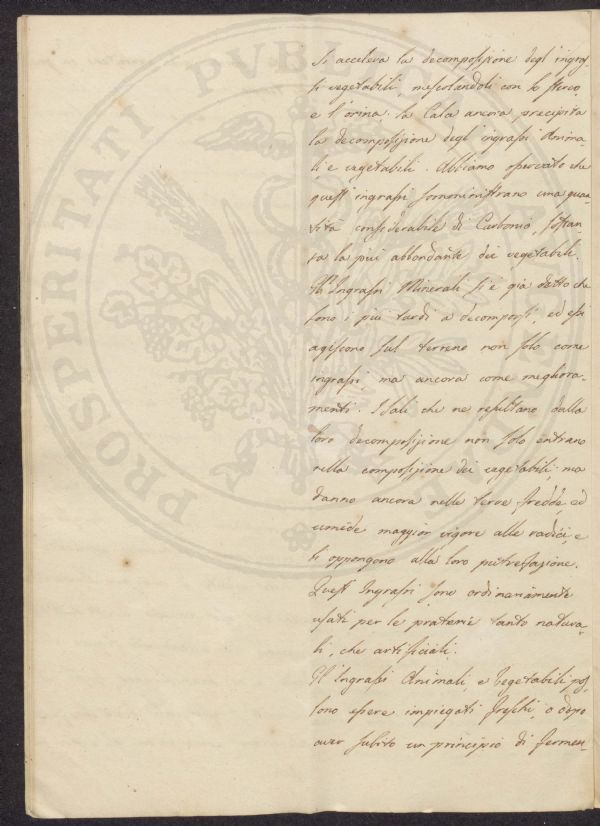 Si acceleva la decomposizione degli ingras-
si vegetabili, mescolandoli con lo sterco,
e l'orina; la Calce ancora precipita
la decomposizione degli ingrassi Anima-
li e vegetabili. Abbiamo osservato che
questi ingrassi somministrano una quan-
tità considerabile di Carbonio, sostan-
za la più abbondante dei vegetabili.
Ingrassi Minerali si è già detto che
sono i più tardi a decomporsi, ed essi
agiscono sul terreno non solo come
ingrassi, ma ancora come migliora-
menti. I Sali che ne resultano dalla
loro decomposizione non solo entrano
nella composizione dei vegetabili; ma
danno ancora nelle terre fredde, ed
umide maggior vigore alle radici, e
si oppongono alla loro putrefazione.
Questi Ingrassi sono ordinariamente
usati per le praterie tanto natura-
li, che artificiali.
Gl'Ingrassi Animali, e Vegetabili pos-
sono essere impiegati freschi, o dopo
aver subito un principio di fermen-
PROSPERITATI PVBLIC